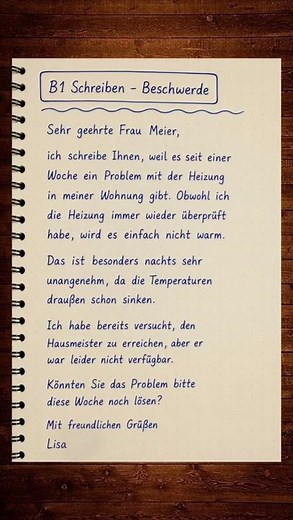 B1 Schreiben – Beschwerde
Sehr geehrte Frau Meier,
ich schreibe Ihnen, weil es seit einer
Woche ein Problem mit der Heizung
in meiner Wohnung gibt. Obwohl ich
die Heizung immer wieder überprüft
habe, wird es einfach nicht warm.
Das ist besonders nachts sehr
unangenehm, da die Temperaturen
draußen schon sinken.
Ich habe bereits versucht, den
Hausmeister zu erreichen, aber er
war leider nicht verfügbar.
Könnten Sie das Problem bitte
diese Woche noch lösen?
Mit freundlichen Grüßen
Lisa